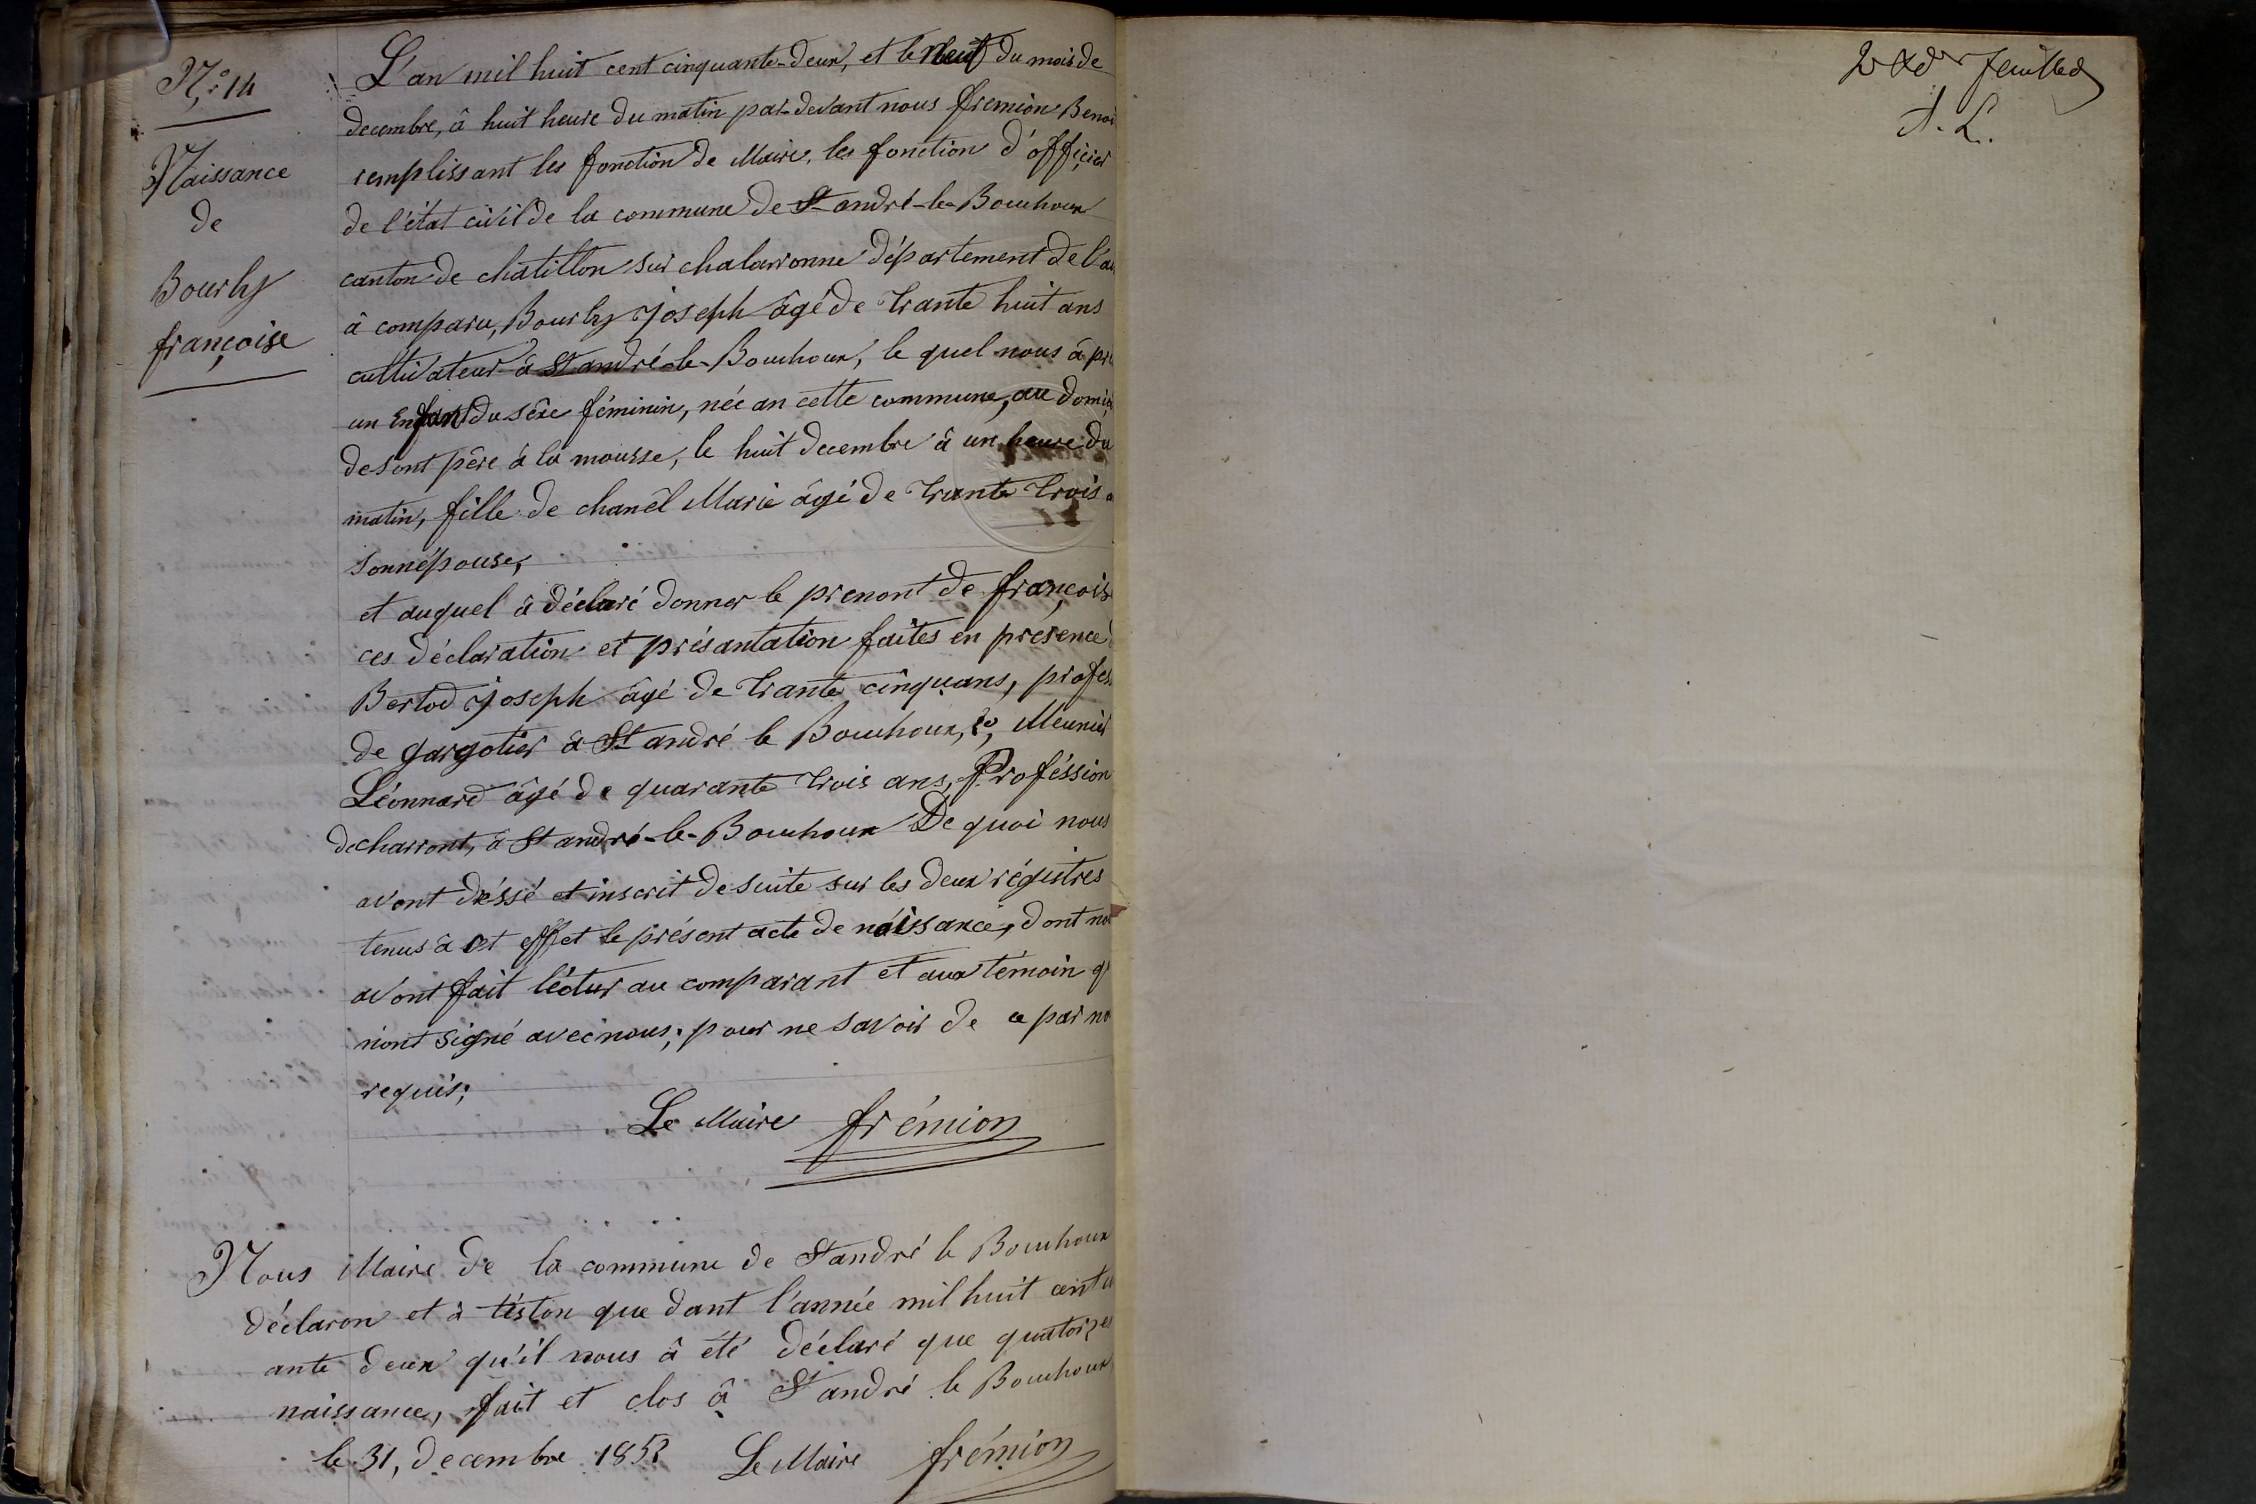 N.° 14
Naissance
de
Bourly
françoise
L'an mil huit cent cinquante-deux, et le neuf du mois de
decembre, à huit heure du matin par-devant nous fremion Benoi
remplissant les fonction de Maire, les fonction d'officier
de l'état civil de la commune de St andré-le-Bouchoux
canton de châtillon sur chalaronne département de l'ai
à comparu, Bourly joseph âgé de trante huit ans
cultivateur à St andré-le-Bouchoux, le quel nous à pré
un Enfant du sêxe féminin, née an cette commune, au domic
de sont père à la mousse, le huit decembre à un heure du
matin, fille de chanêl Marie âgé de trante trois a
sonnépouse,
et auquel à déclaré donner le prenont de françois
ces déclaration et présantation faites en présence d
Bertod joseph âgé de trante cinquans, profes
de gargotier à St andré le Bouchoux, Meunier
Léonnard âgé de quarante trois ans, Proféssion
de charront, à St andré-le-Bouchoux De quoi nous
avont dréssé et inscrit de suite sur les deux régistres
tenus à cet effet le présent acte de naissance, dont no
avont fait léctur au comparant et aux témoin q
n'ont signé avec nous; pour ne savoir de ce par no
requis;
Le Maire frémion
Nous Maire de la commune de St andré le Bouchoux
déclaron et à-téston que dant l'année mil huit cent c
ante deux qu'il nous à été déclaré que quatorzes
naissance, fait et clos à St andré le Bouchoux
le 31, decembre 1852 Le Maire frémion
feuillet
A. L.